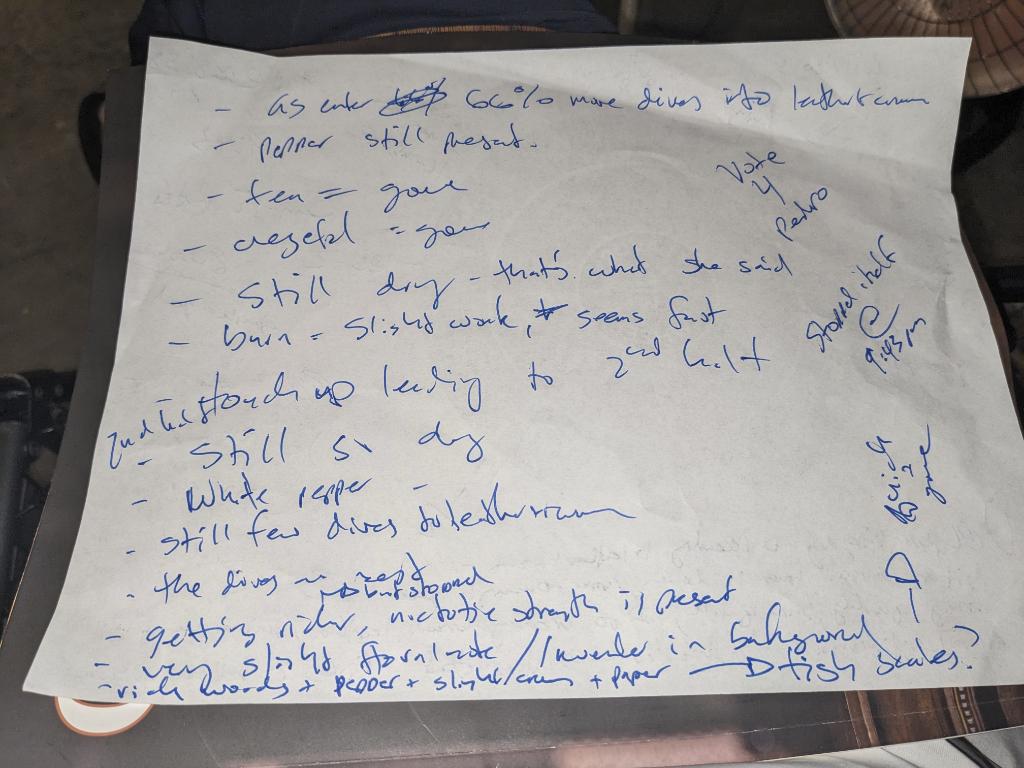 - as enter 66% more dives into leather + cream
- pepper still present.
- tea = gone
- = gone
- still dry - that's what she said
- burn = slight wonk, seems fast
touch up leading to 2nd half
- still dry
- White pepper -
- still few dives to leather + cream
- the dives
- getting richer, nicotine strength is present
- very slight floral note / lavender in background
- rich woods + pepper + slight cream + paper → fish scales?
Vote
4
Pedro
Started 1 half
@
9:43 pm
quick
2
gone